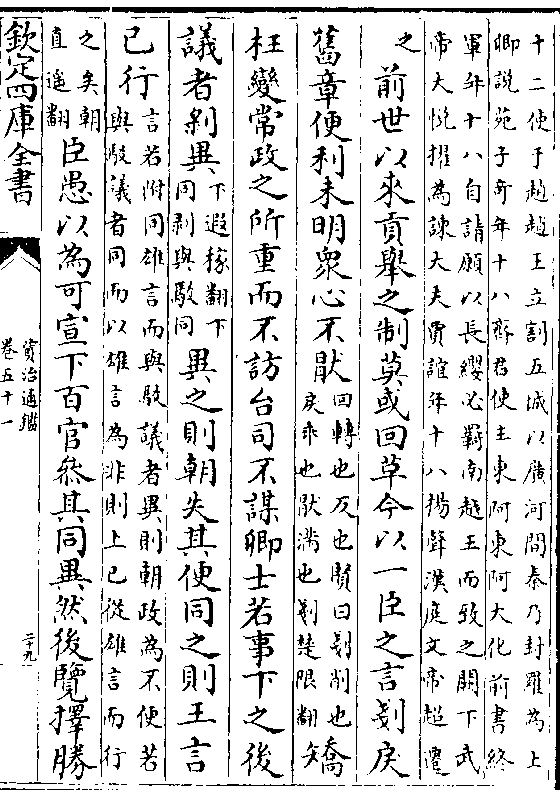 十二使于趙趙王立割五城以廣河間秦乃封羅為上
卿說苑子竒年十八齊君使主東阿東阿大化前書終
軍年十八自請願以長纓必羈南越王而致之闕下武
帝大悅擢為諫大夫賈誼年十八揚聲漢庭文帝超遷
之
前世以來貢舉之制莫或回革今以一臣之言剗戾
舊章便利未明衆心不猒
回轉也反也賢曰剗削也
戾乖也猒滿也剗楚限翻
矯
枉變常政之所重而不訪台司不謀卿士若事下之後
議者剥異
下遐稼翻下
同剥與駮同
異之則朝失其便同之則王言
已行
言若附同雄言而與駮議者異則朝政為不便若
與駮議者同而以雄言為非則上已從雄言而行
之矣朝
直遥翻
臣愚以為可宣下百官叅其同異然後覽擇勝
欽定四庫全書
資治通鑑
卷五十一
二十九